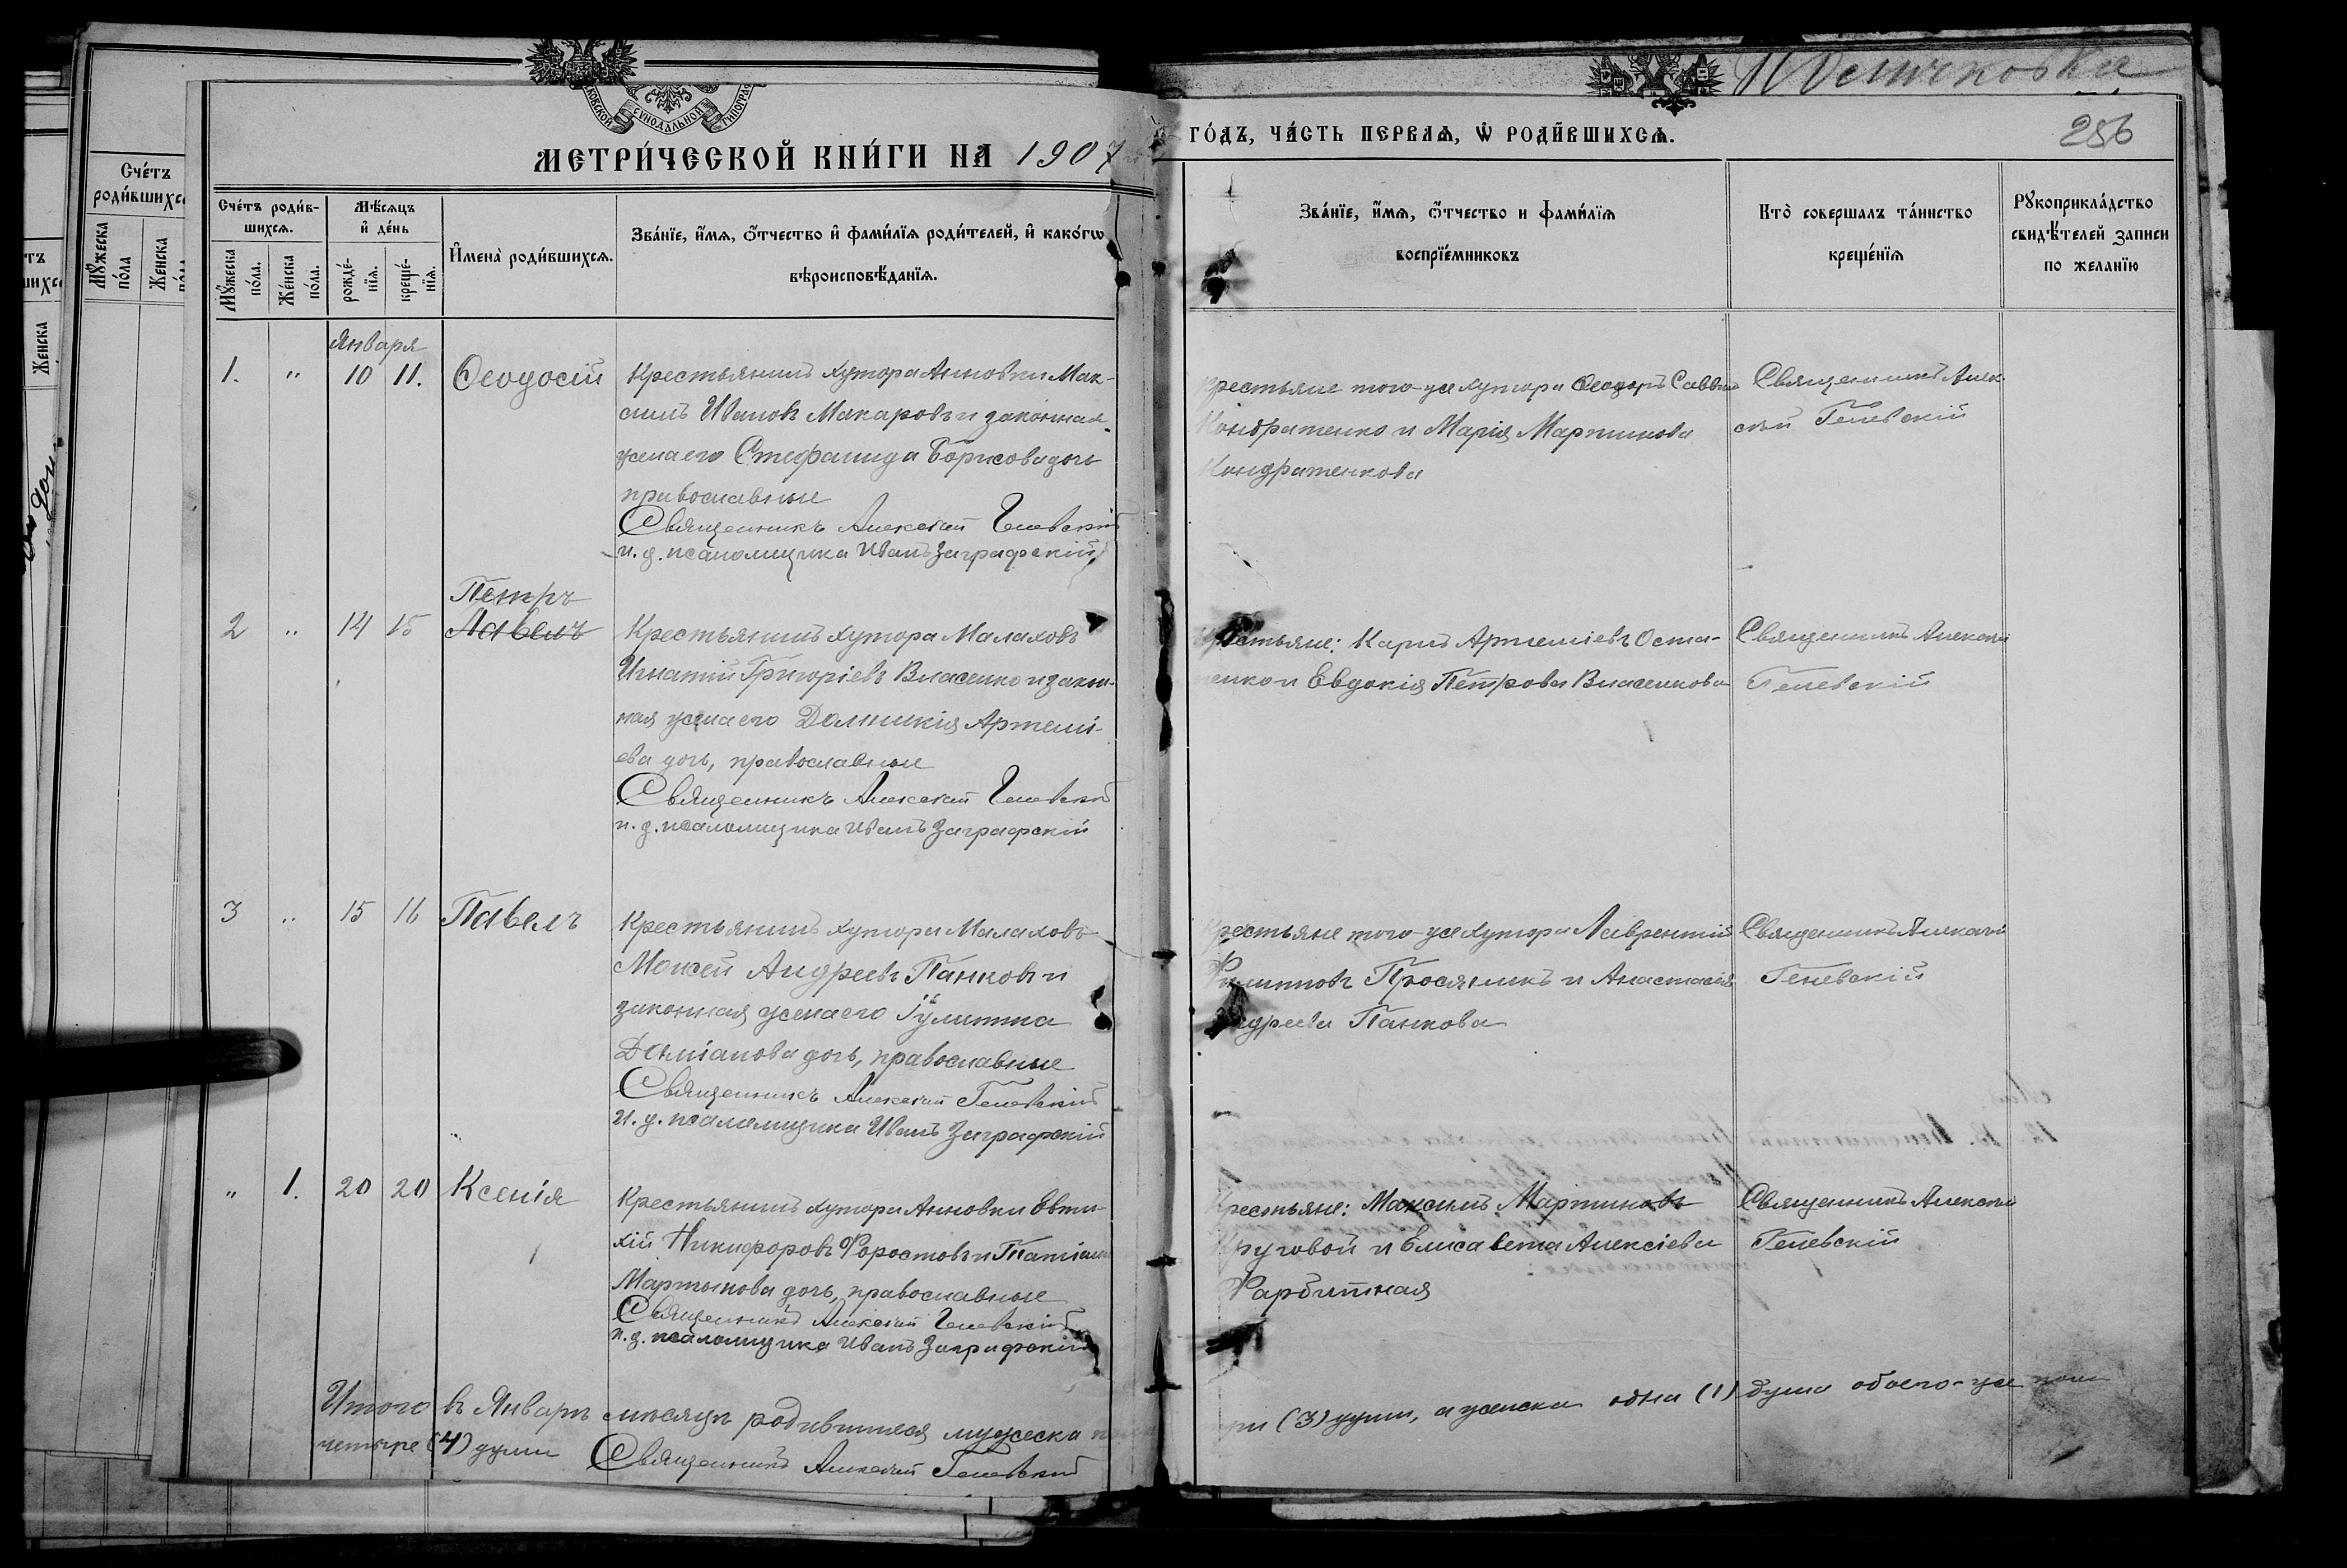 МЕТРИ́ЧЕСКОЙ КНИ́ГИ НА 1907
ГО́ДЪ, ЧА́СТЬ ПЕРВАѦ, Ѡ҆ РОДИ́ВШИХСѦ.
286
Сче́тъ роди́вшихсѧ
Мꙋ́жеска по́ла
Же́нска
Сче́тъ роди́в-
шихсѧ.
Мꙋ́жеска по́ла.
Же́нска по́ла.
Мѣ́сѧцъ
и҆ де́нь
рожде́-
нїѧ.
креще́-
нїѧ.
И҆мена̀ роди́вшихсѧ.
Зва́нїе, и҆́мѧ, ѻ҆́тчество и҆ фами́лїѧ роди́телей, и҆ како́гѡ
вѣроисповѣ́данїѧ.
Зва́нїе, и҆́мѧ, ѻ҆́тчество и фами́лїѧ
воспрїе́мниковъ
Кто̀ совершалъ та́инство
креще́нїѧ
Рꙋкоприкла́дство
свидѣ́телей записи
по желанїю
Января
1. " 10 11. Ѳеодосій
Крестьянинъ хутора Анновки Мак-
симъ Ивановъ Макаровъ и законная
жена его Стефанида Борисова дочь
православные
Священникъ Алексій Геневскій
и. д. псаломщика Иванъ Заграфскій
Крестьяне того-же хутора Ѳеодоръ Саввинъ
Кондратенко и Марія Мартинова
Кондратенкова
Священникъ Алек-
сѣй Геневскій
2 " 14 15 Петръ
Павелъ
Крестьянинъ хутора Малахова
Игнатій Григоріевъ Власенко и закон-
ная жена его Домникія Артемі-
ева дочь, православные
Священникъ Алексій Геневскій
и. д. псаломщика Иванъ Заграфскій
Крестьяне: Карпъ Артеміевъ Оста-
пенко и Евдокія Петрова Власенкова
Священникъ Алексій
Геневскій
3 " 15 16 Павелъ
Крестьянинъ хутора Малахова
Моисей Андреевъ Панковъ и
законная жена его Іулитта
Даміанова дочь, православные
Священникъ Алексій Геневскій
и. д. псаломщика Иванъ Заграфскій
Крестьяне того-же хутора Лаврентій
Филипповъ Просяникъ и Анастасія
Андреева Панкова
Священникъ Алексій
Геневскій
" 1. 20 20 Ксенія
Крестьянинъ хутора Анновки Евти-
хій Никифоровъ Форостовъ и Татіана
Мартынова дочь, православные
Священникъ Алексій Геневскій
и. д. псаломщика Иванъ Заграфскій
Крестьяне: Максимъ Мартиновъ
Круговой и Елисавета Алексіева
Фарбитная
Священникъ Алексій
Геневскій
Итого въ Январѣ мѣсяцѣ родившихся мужеска три (3) души, а женска одна (1) душа обоего-же пола
четыре (4) души Священникъ Алексій Геневскій